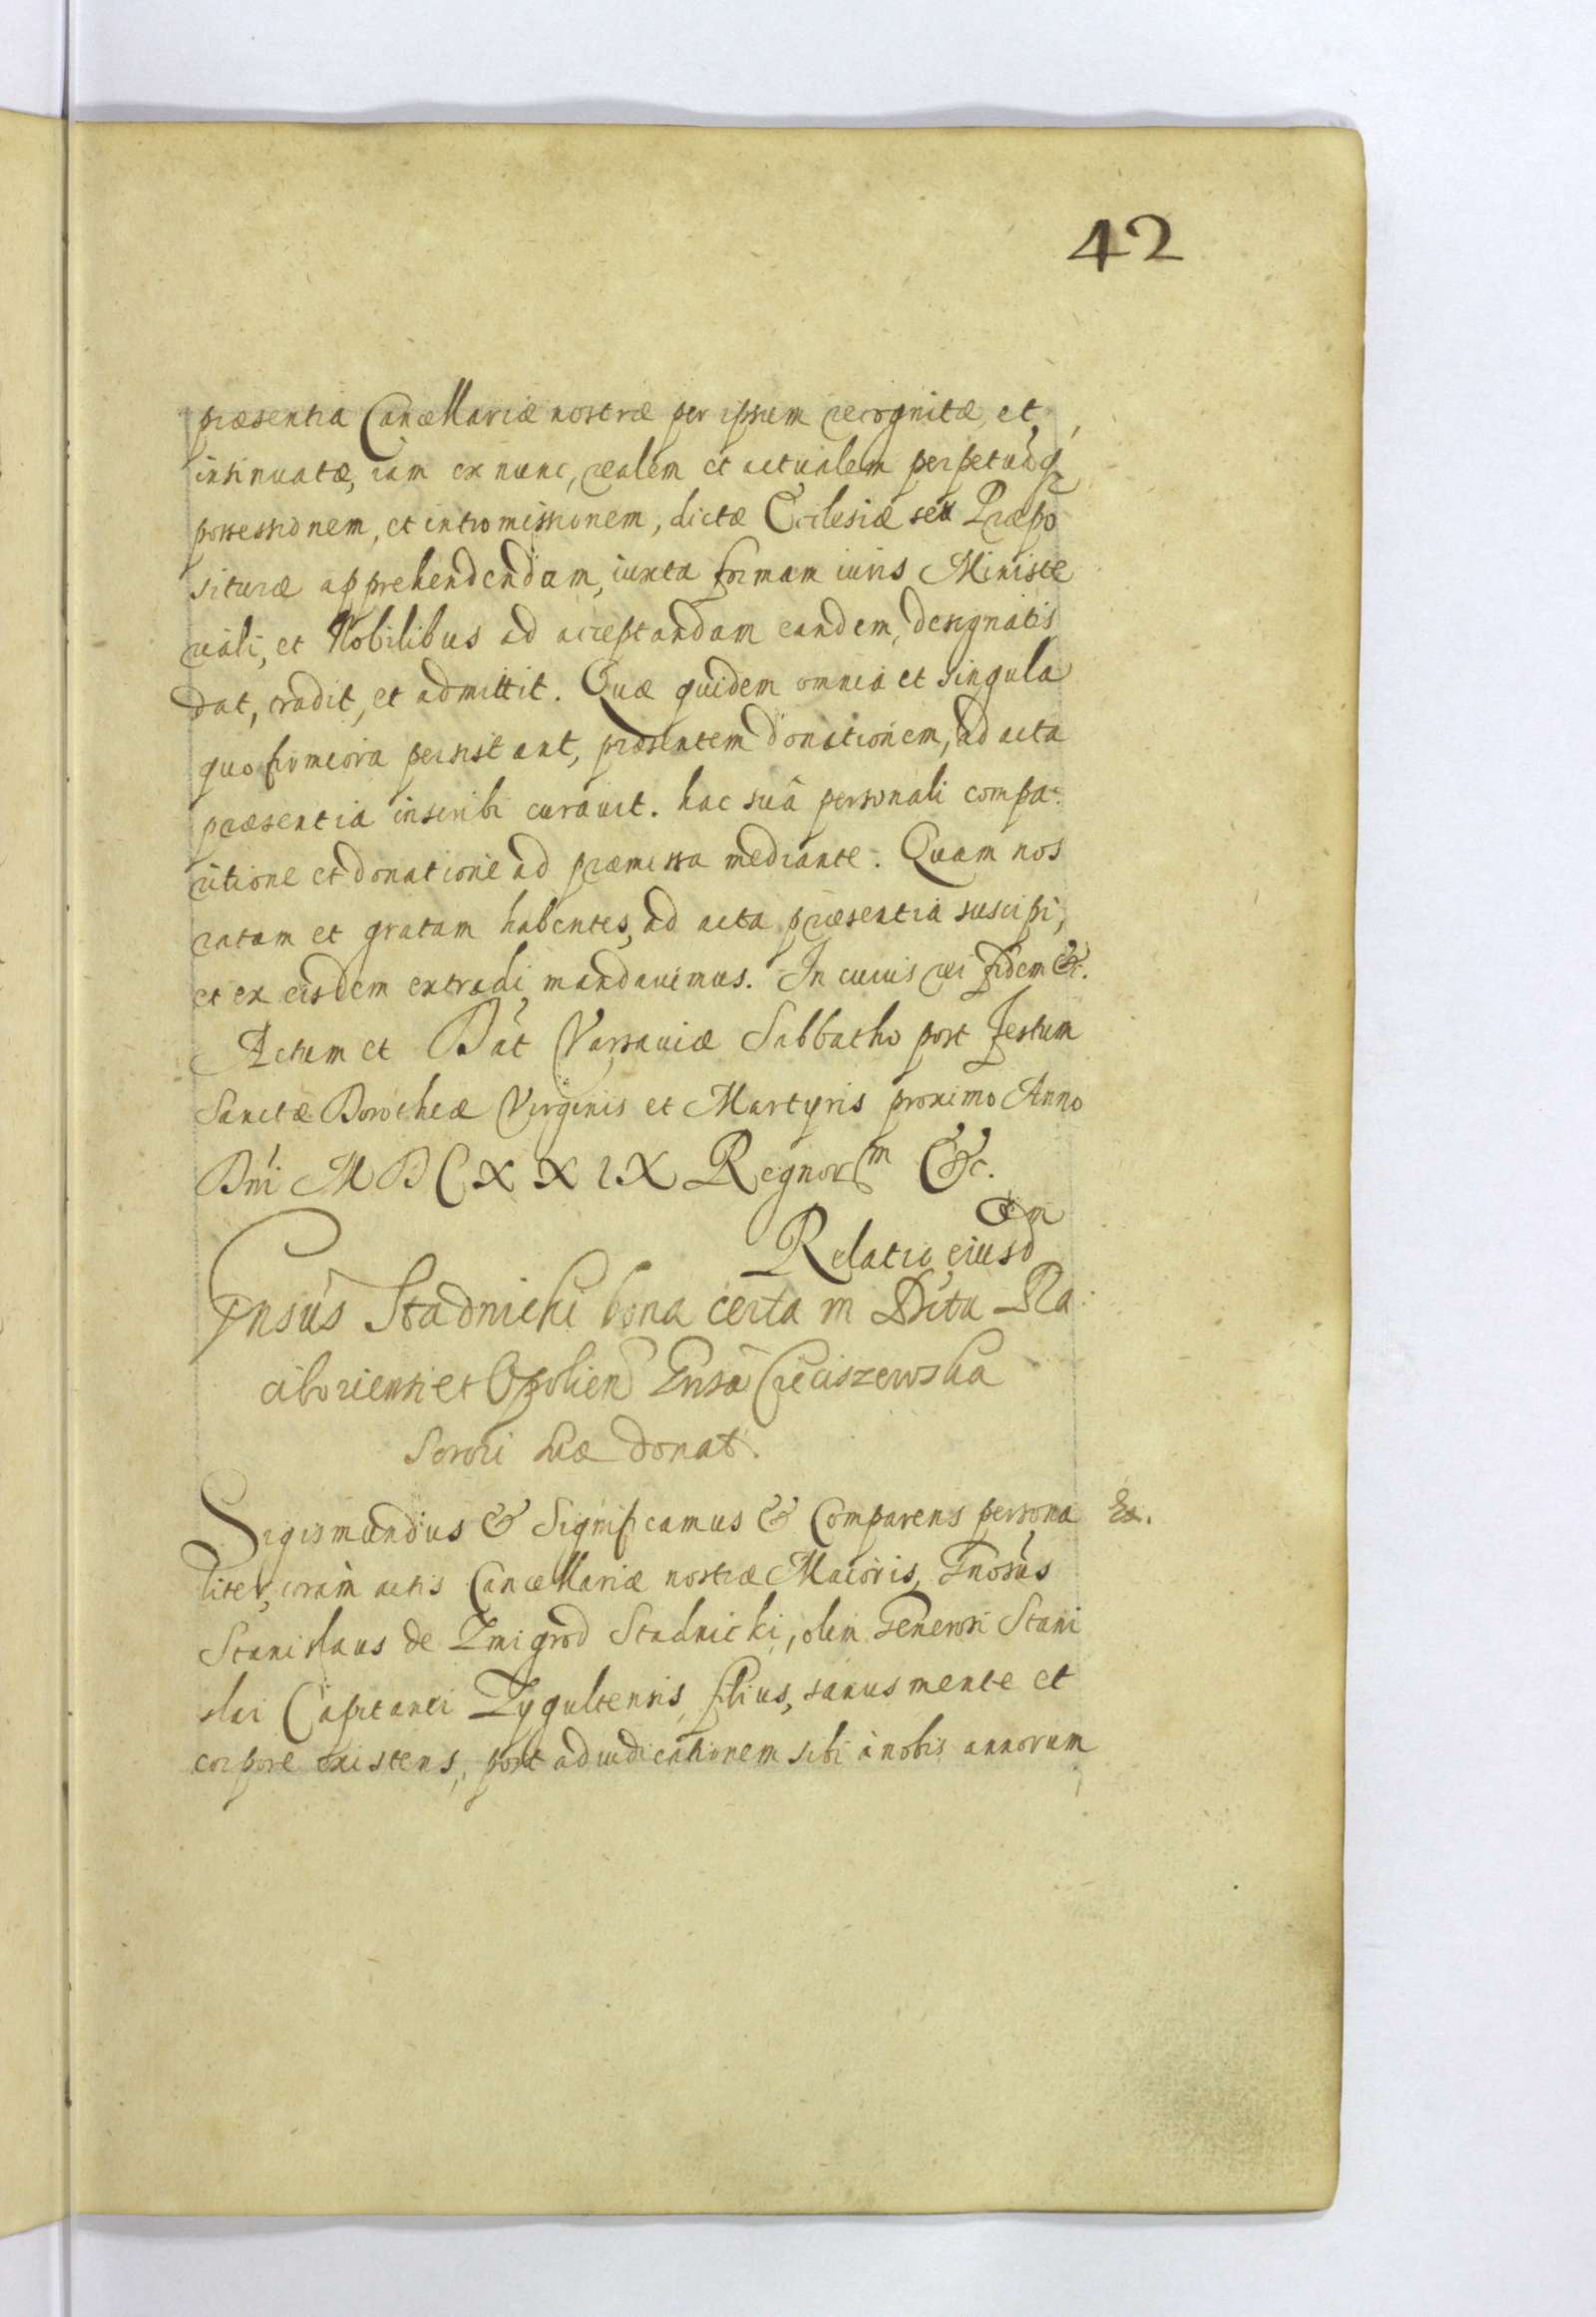 42
præsentia Cancellariæ nostræ per ipsum recognitæ, et
insinuatæ, iam ex nunc, realem et actualem perpetuāq́
possessionem, et intromissionem, dictæ Ecclesiæ seu Præpo
situræ apprehendendam, iuxta formam iuris Ministe
riali, et Nobilibus ad acceptandam eandem, designatis
dat, tradit, et admittit. Quæ quidem omnia et singula
quo firmiora persistant, præsentem donationem, ad acta
præsentia inscribi curauit. hac suâ personali compa:
ritione et donatione ad præmissa mediante. Quam nos
ratam et gratam habentes, ad acta præsentia suscipi,
et ex eisdem extradi mandauimus. In cuius rei fidem &c.
Actum et Dat Varsauiæ Sabbatho post Festum
Sanctæ Dorotheæ Virginis et Martyris proximo Anno
Dni M D C X X I X Regnorm &c.
Relatio eiusdem
Gnsus Stadnicki bona certa in Dctu Ra:
ciboriensi et Opolien Gnsa Creciszewska
Sorori suæ donat.
Sigismundus & Significamus & Comparens persona
liter, coram actis Cancellariæ nostræ Maioris, Gnosus
Stanislaus de Zmigrod Stadnicki, olim Generosi Stani
slai Capitanei Zygultensis, filius, sanus mente et
corpore existens, post adiudicationem sibi à nobis annorum